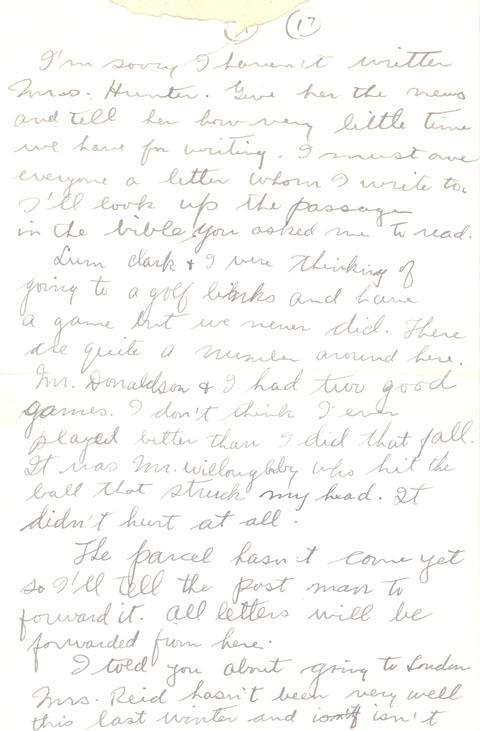 17
I'm sorry I haven't written
Mrs. Hunter. Give her the news
and tell her how very little time
we have for writing. I must owe
everyone a letter whom I write to.
I'll look up the passage
in the bible you asked me to read.
Lum Clark & I were thinking of
going to a golf links and have
a game but we never did. There
are quite a number around here.
Mr. Donaldson & I had two good
games. I don't think I ever
played better than I did that fall.
It was Mr. Willoughby who hit the
ball that struck my head. It
didn't hurt at all.
The parcel hasn't come yet
so I'll tell the post man to
forward it. All letters will be
forwarded from here.
I told you about going to London
Mrs. Reid hasn't been very well
this last winter and isn't